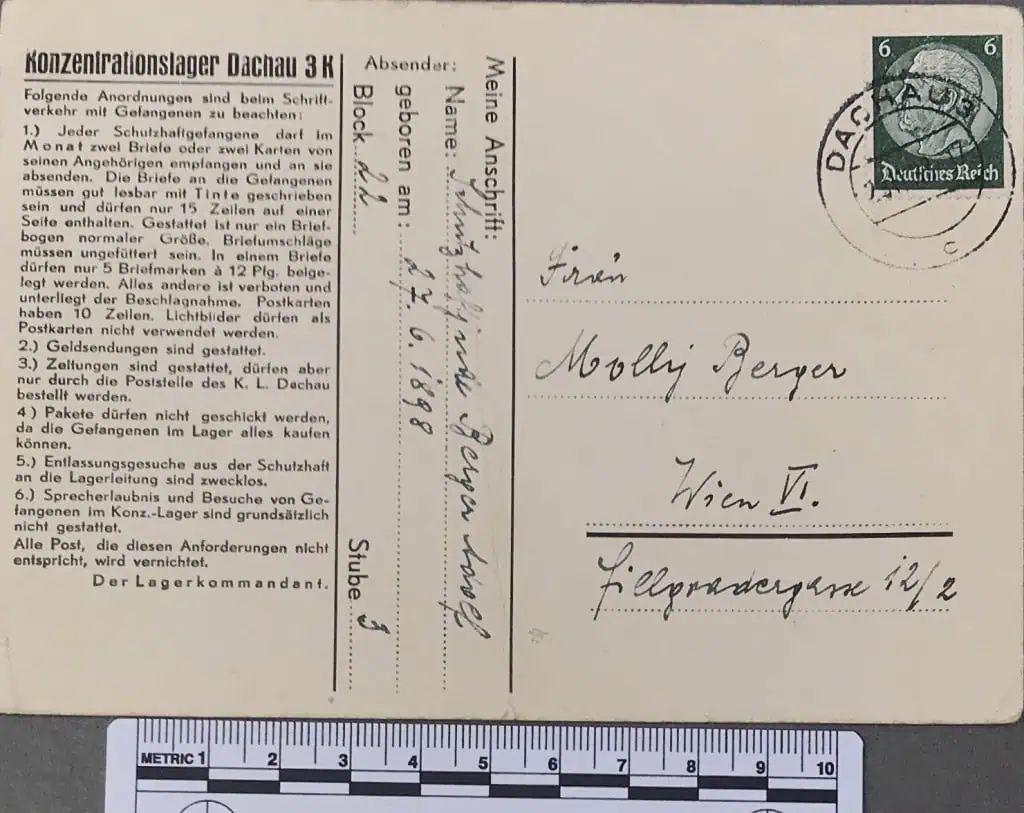 Konzentrationslager Dachau 3 K
Folgende Anordnungen sind beim Schrift-
verkehr mit Gefangenen zu beachten:
1.) Jeder Schutzhaftgefangene darf im
Monat zwei Briefe oder zwei Karten von
seinen Angehörigen empfangen und an sie
absenden. Die Briefe an die Gefangenen
müssen gut lesbar mit Tinte geschrieben
sein und dürfen nur 15 Zeilen auf einer
Seite enthalten. Gestattet ist nur ein Brief-
bogen normaler Größe. Briefumschläge
müssen ungefüttert sein. In einem Briefe
dürfen nur 5 Briefmarken à 12 Pfg. beige-
legt werden. Alles andere ist verboten und
unterliegt der Beschlagnahme. Postkarten
haben 10 Zeilen. Lichtbilder dürfen als
Postkarten nicht verwendet werden.
2.) Geldsendungen sind gestattet.
3.) Zeitungen sind gestattet, dürfen aber
nur durch die Poststelle des K. L. Dachau
bestellt werden.
4) Pakete dürfen nicht geschickt werden,
da die Gefangenen im Lager alles kaufen
können.
5.) Entlassungsgesuche aus der Schutzhaft
an die Lagerleitung sind zwecklos.
6.) Sprecherlaubnis und Besuche von Ge-
fangenen im Konz.-Lager sind grundsätzlich
nicht gestattet.
Alle Post, die diesen Anforderungen nicht
entspricht, wird vernichtet.
Der Lagerkommandant.
Absender:
Meine Anschrift:
Name: Schutzhaftjude Berger Adolf
geboren am: 27. 6. 1898
Block 22 Stube 3
6 6
Deutsches Reich
DACHAU 3
c
Frau
Molly Berger
Wien VI.
Fillgradergasse 12/2
METRIC 1 2 3 4 5 6 7 8 9 10